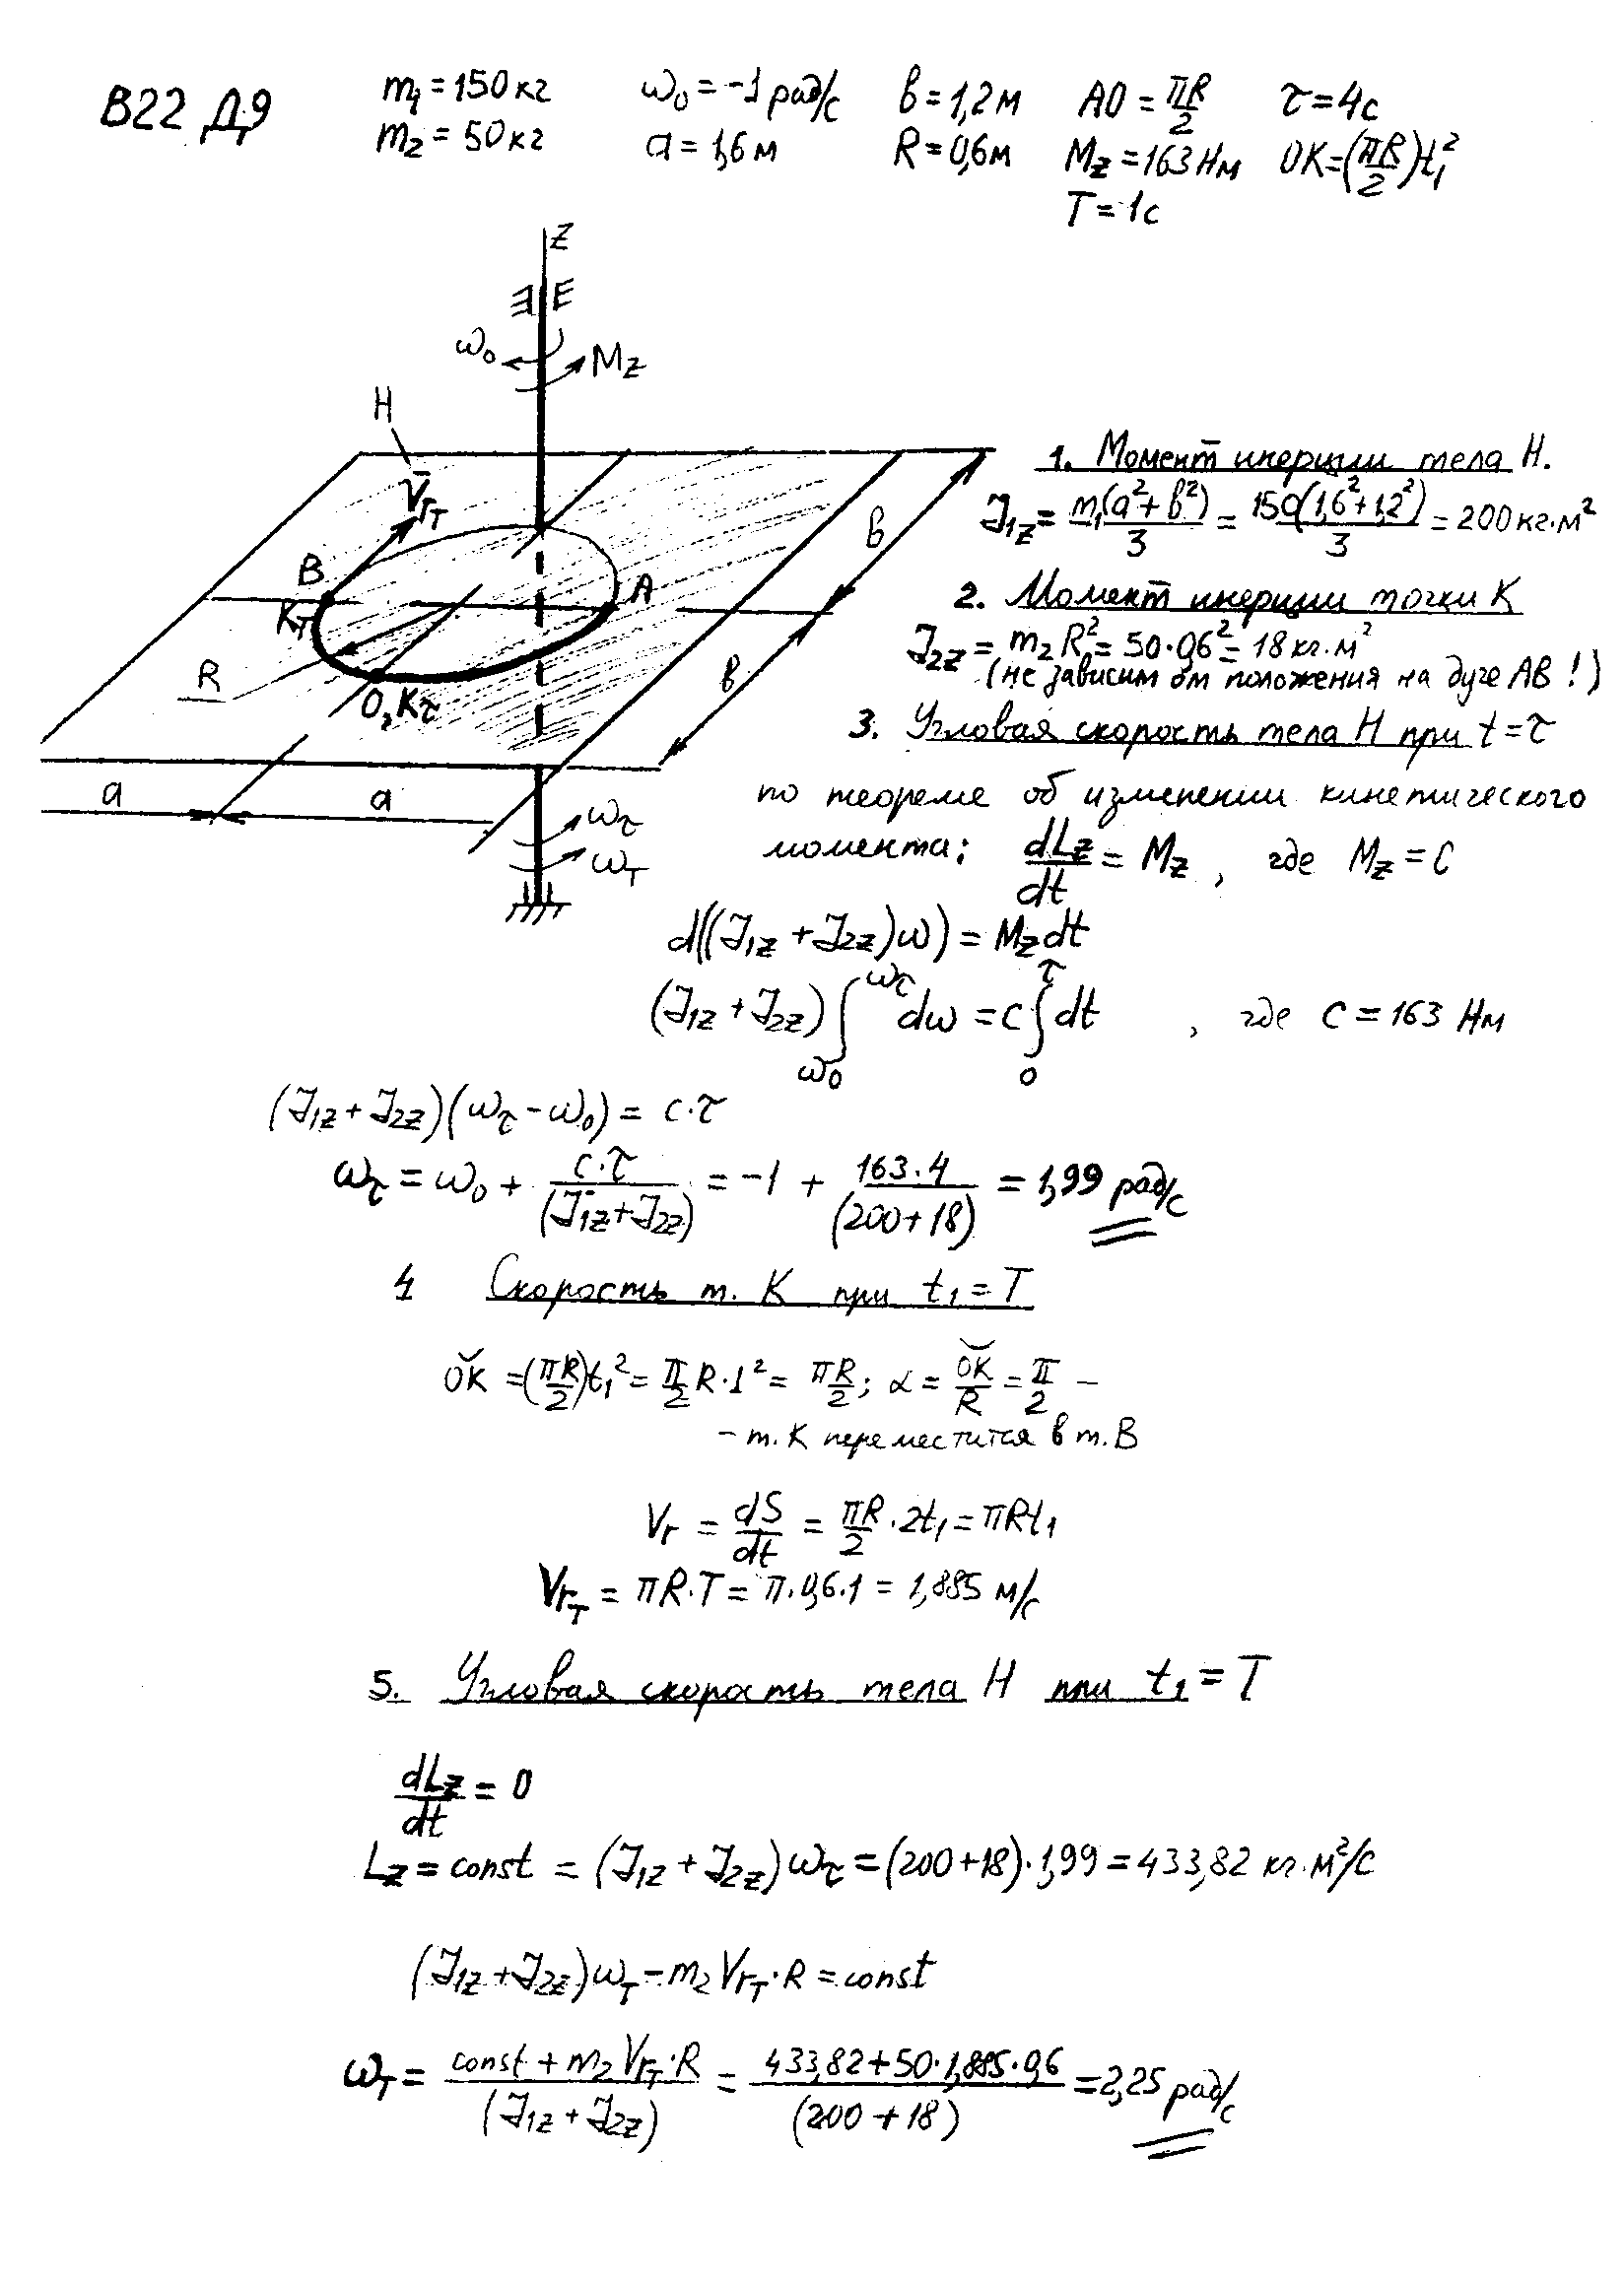 В22 Д9
m₁ = 150 кг ω₀ = -1 рад/с в = 1,2 м АО = πR/2 τ = 4с
m₂ = 50 кг a = 1,6 м R = 0,6 м Mz = 163 Нм OK = (πR/2)t₁²
T = 1с
z
ω₀ Mz
H
V̄rT
B
A
KT
R
O, Kτ
в
в
a a
ωτ
ωT
1. Момент инерции тела Н.
J1z = m₁(a² + в²)/3 = 150(1,6² + 1,2²)/3 = 200 кг·м²
2. Момент инерции точки К
J2z = m₂R² = 50·0,6² = 18 кг·м²
(не зависим от положения на дуге АВ!)
3. Угловая скорость тела Н при t = τ
по теореме об изменении кинетического
момента: dLz/dt = Mz, где Mz = C
d((J1z + J2z)ω) = Mzdt
(J1z + J2z) ∫ω₀^ωτ dω = c ∫₀^τ dt , где C = 163 Нм
(J1z + J2z)(ωτ - ω₀) = c·τ
ωτ = ω₀ + c·τ/(J1z + J2z) = -1 + 163·4/(200 + 18) = 1,99 рад/с
4 Скорость т. К при t₁ = T
OK = (πR/2)t₁² = π/2 R·1² = πR/2; α = OK/R = π/2 –
– т. К переместится в т. В
Vr = dS/dt = πR/2·2t₁ = πRt₁
VrT = πR·T = π·0,6·1 = 1,885 м/с
5. Угловая скорость тела Н при t₁ = T
dLz/dt = 0
Lz = const = (J1z + J2z)ωτ = (200 + 18)·1,99 = 433,82 кг·м²/с
(J1z + J2z)ωT - m₂VrT·R = const
ωT = const + m₂VrT·R/(J1z + J2z) = 433,82 + 50·1,885·0,6/(200 + 18) = 2,25 рад/с